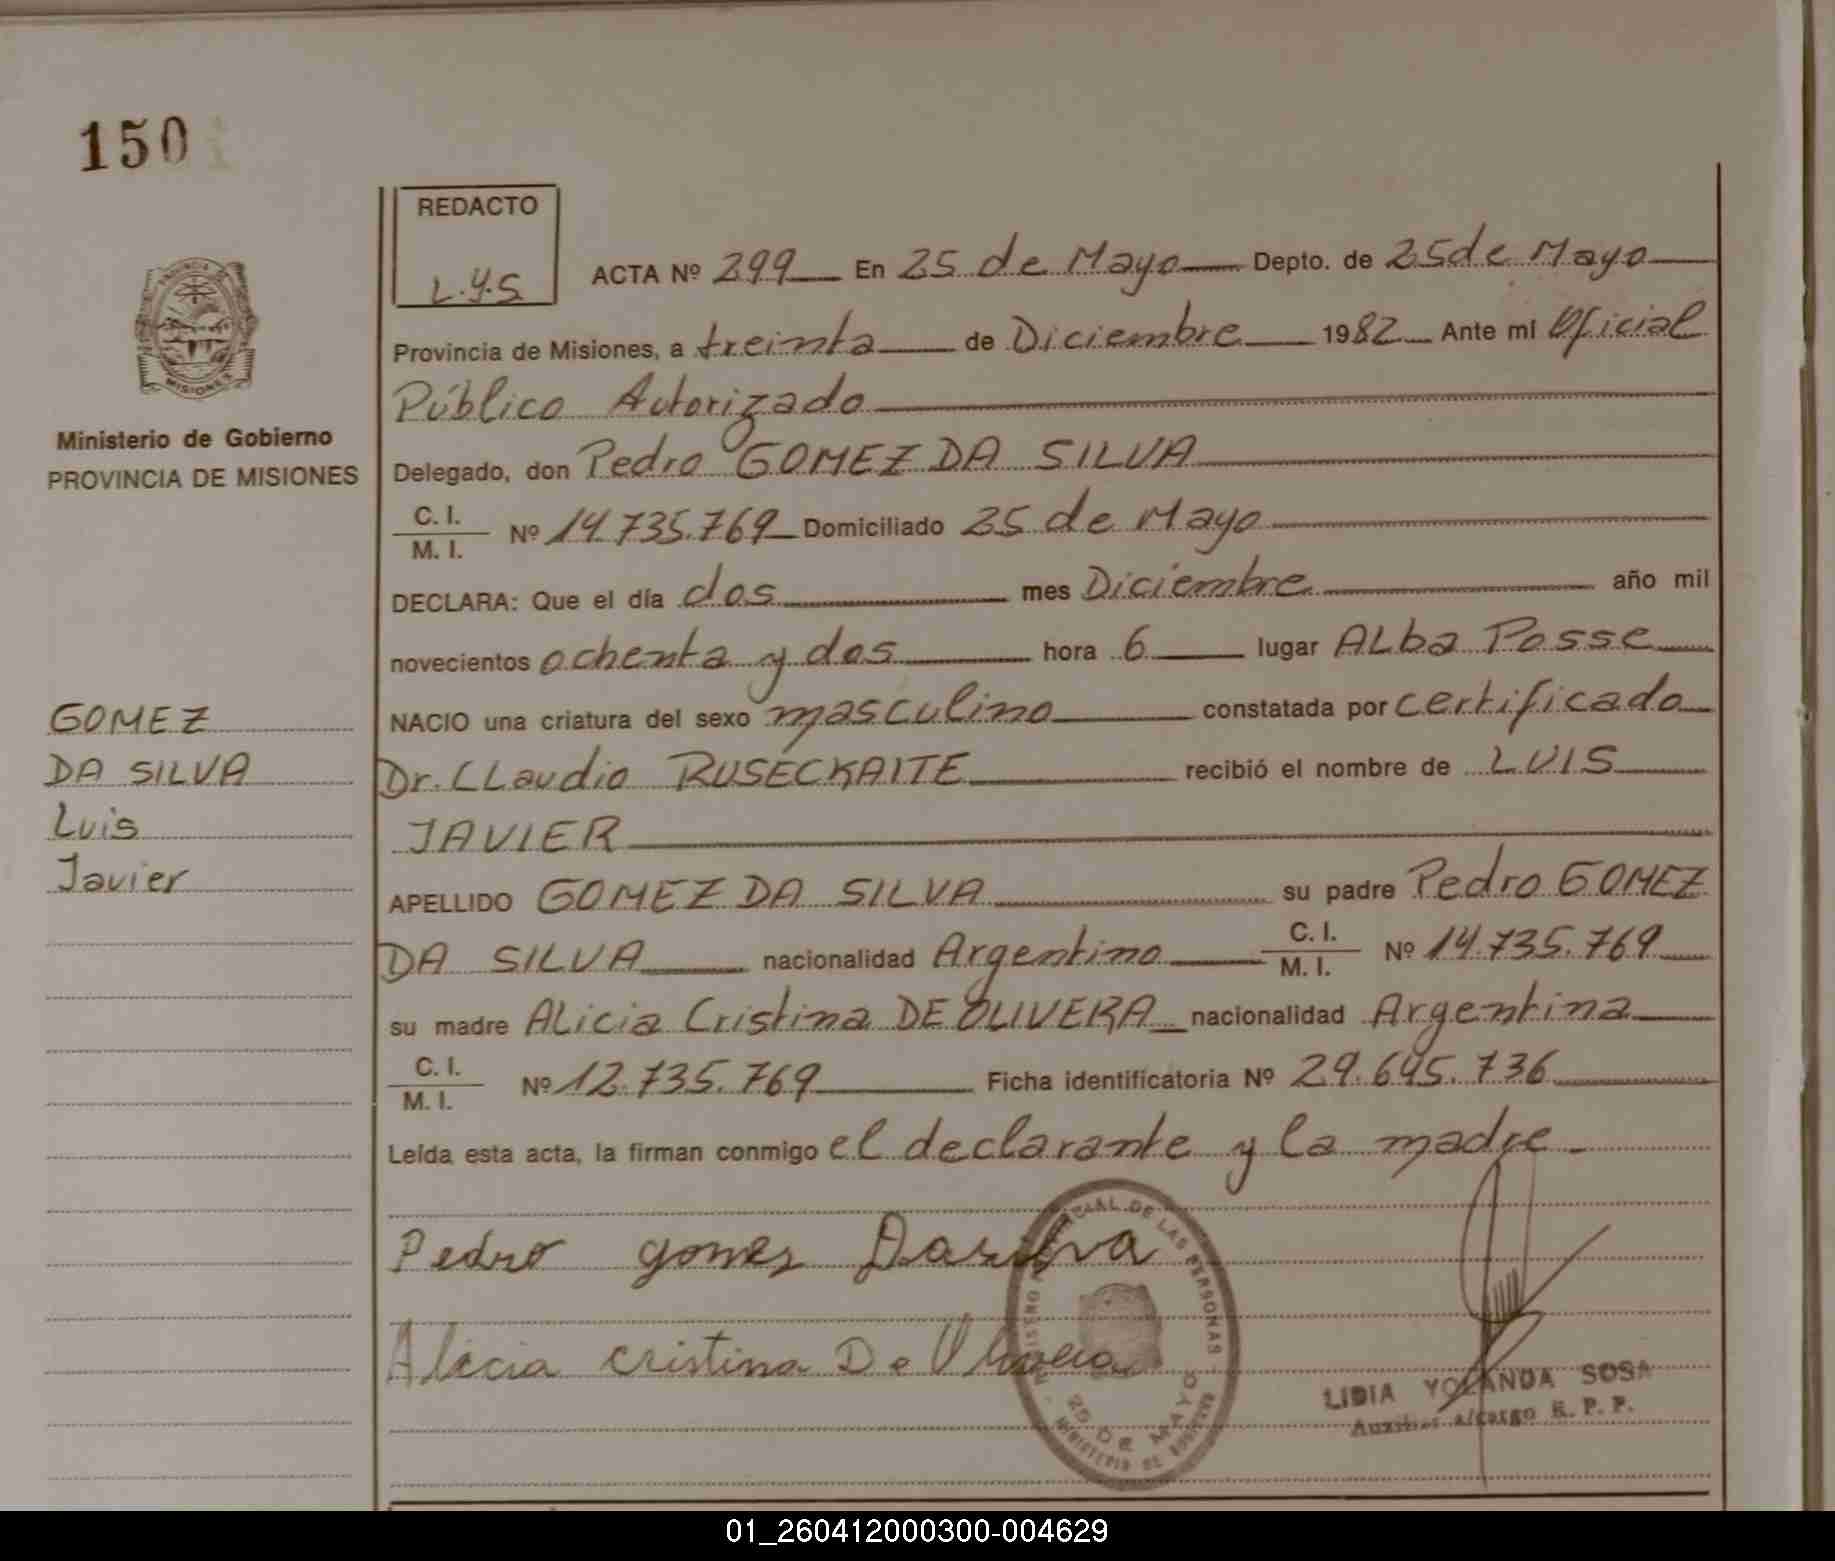 150
REDACTO
L.Y.S
ACTA Nº 299 En 25 de Mayo Depto. de 25 de Mayo
Provincia de Misiones, a treinta de Diciembre 1982 Ante mi Oficial
Público Autorizado
Delegado, don Pedro GOMEZ DA SILVA
C. I.
M. I. Nº 14.735.769 Domiciliado 25 de Mayo
DECLARA: Que el día dos mes Diciembre año mil
novecientos ochenta y dos hora 6 lugar ALba Posse
NACIO una criatura del sexo masculino constatada por certificado
Dr. CLaudio RUSECKAITE recibió el nombre de LUIS
JAVIER
APELLIDO GOMEZ DA SILVA su padre Pedro GOMEZ
DA SILVA nacionalidad Argentino C. I. M. I. Nº 14.735.769
su madre ALicia Cristina DE OLIVERA nacionalidad Argentina
C. I.
M. I. Nº 12.735.769 Ficha identificatoria Nº 29.645.736
Leída esta acta, la firman conmigo el declarante y la madre
Pedro gomes Dasilva
Alicia cristina De Olivera
PROVINCIA DE
MISIONES
Ministerio de Gobierno
PROVINCIA DE MISIONES
GOMEZ
DA SILVA
Luis
Javier
REGISTRO PROVINCIAL DE LAS PERSONAS
25 DE MAYO
MINISTERIO DE GOBIERNO
LIDIA YOLANDA SOSA
Auxiliar a/cargo R. P. P.
01_260412000300-004629